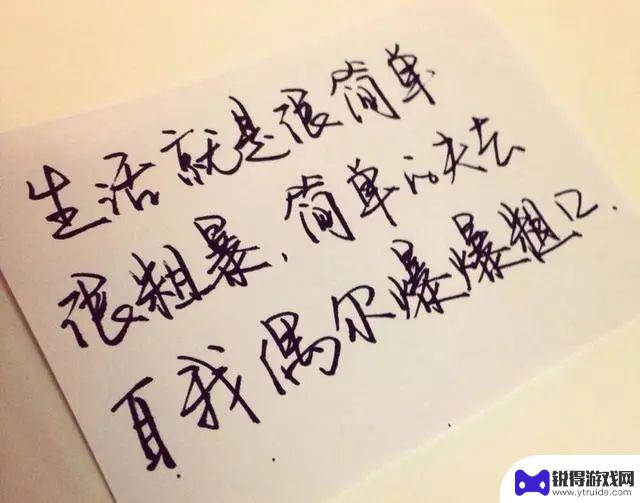 生活就是很简单
很粗暴、简单的失去
自我偶尔爆爆粗口.
锐得游戏网
www.ytruida.com